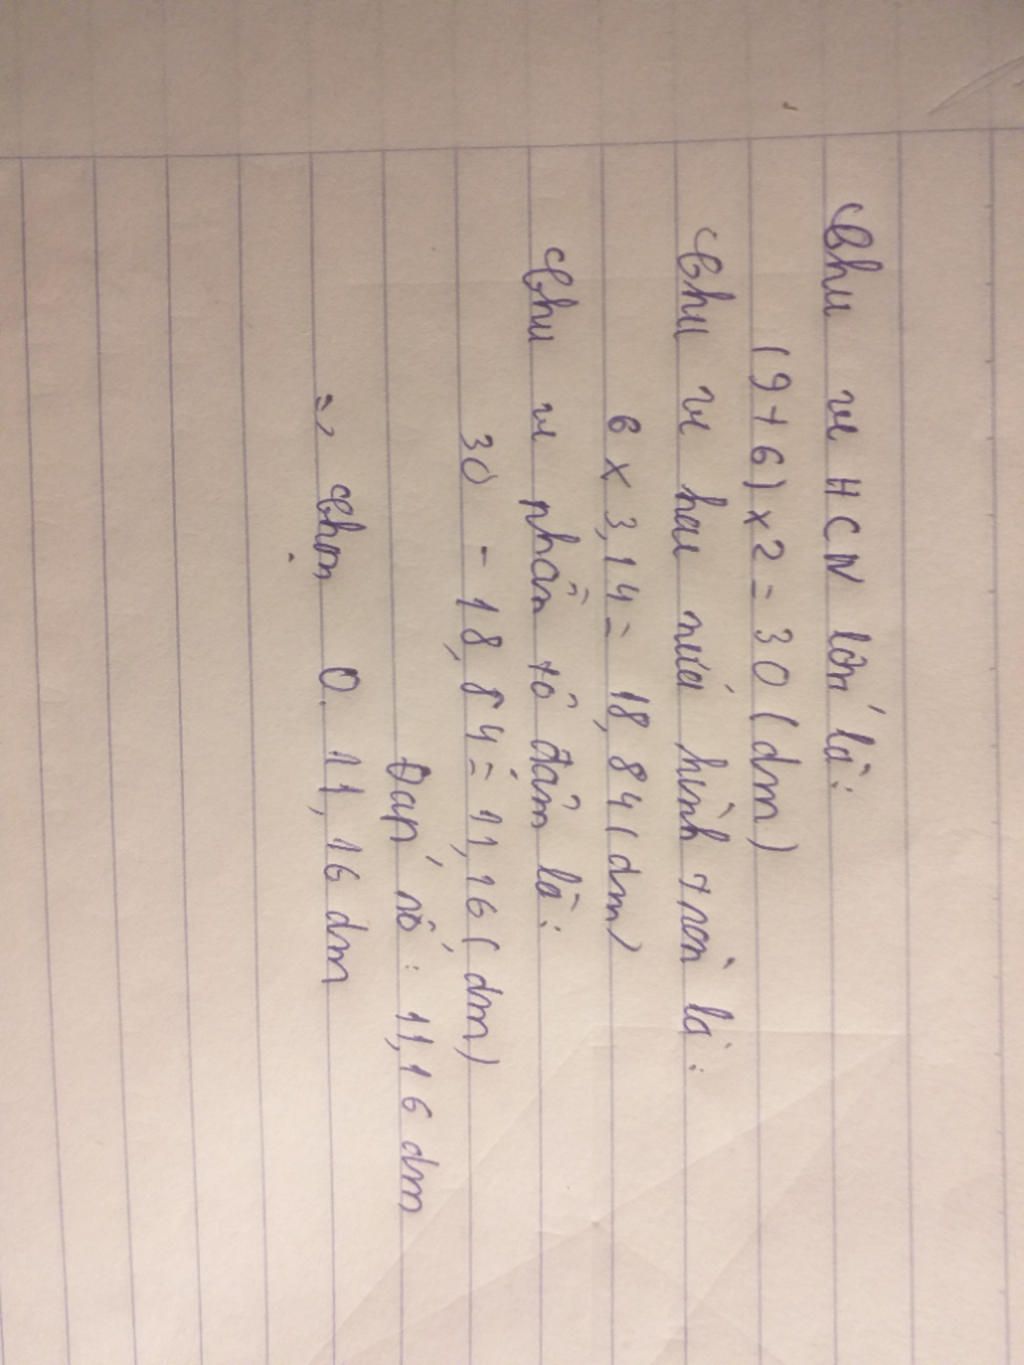 Chu vi HCN lớn là:
(9+6) x 2 = 30 (dm)
Chu vi hai nửa hình tròn là:
6 x 3,14 = 18,84 (dm)
Chu vi phần tô đậm là:
30 - 18,84 = 11,16 (dm)
Đáp số: 11,16 dm
=> Chọn D. 11,16 dm